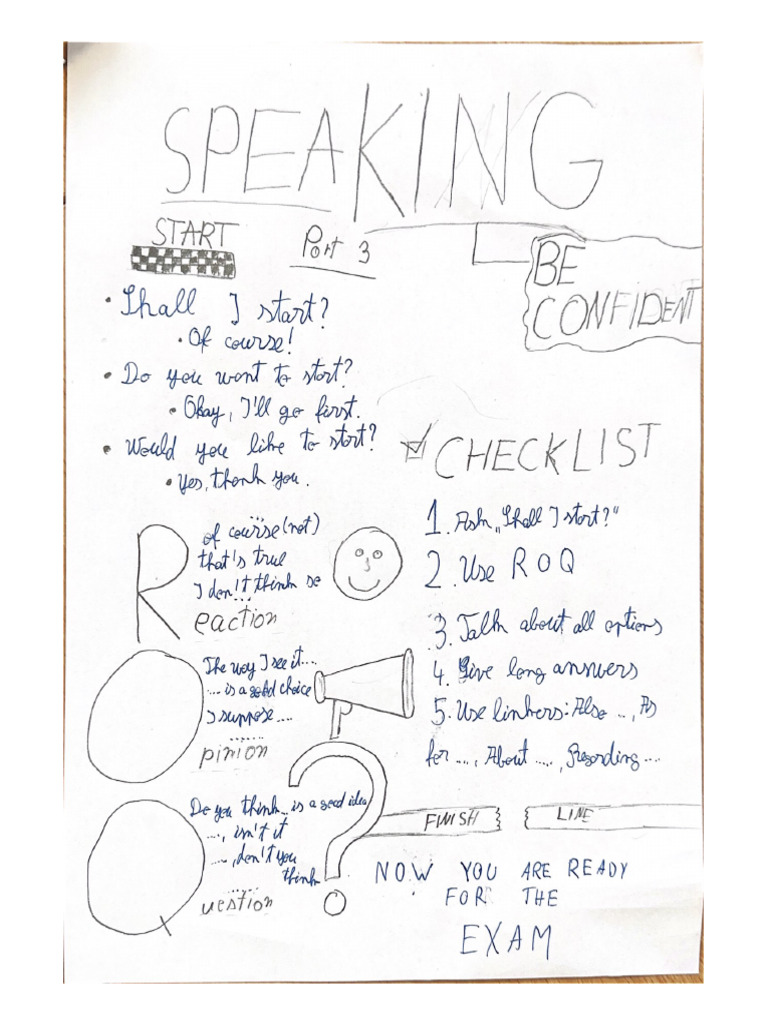 SPEAKING
START
Part 3
BE
CONFIDENT
• Shall I start?
• Of course!
• Do you want to start?
• Okay, I'll go first.
• Would you like to start?
• Yes, thank you.
R
of course (not)
that's true
I don't think so
eaction
O
The way I see it....
.... is a good choice
I suppose ....
pinion
Q
Do you think... is a good idea
...., isn't it
...., don't you
think
uestion
CHECKLIST
1. Ask „Shall I start?"
2. Use ROQ
3. Talk about all options
4. Give long answers
5. Use linkers: Also ..., As
for ...., About ....., Regarding ....
FINISH LINE
NOW YOU ARE READY
FOR THE
EXAM